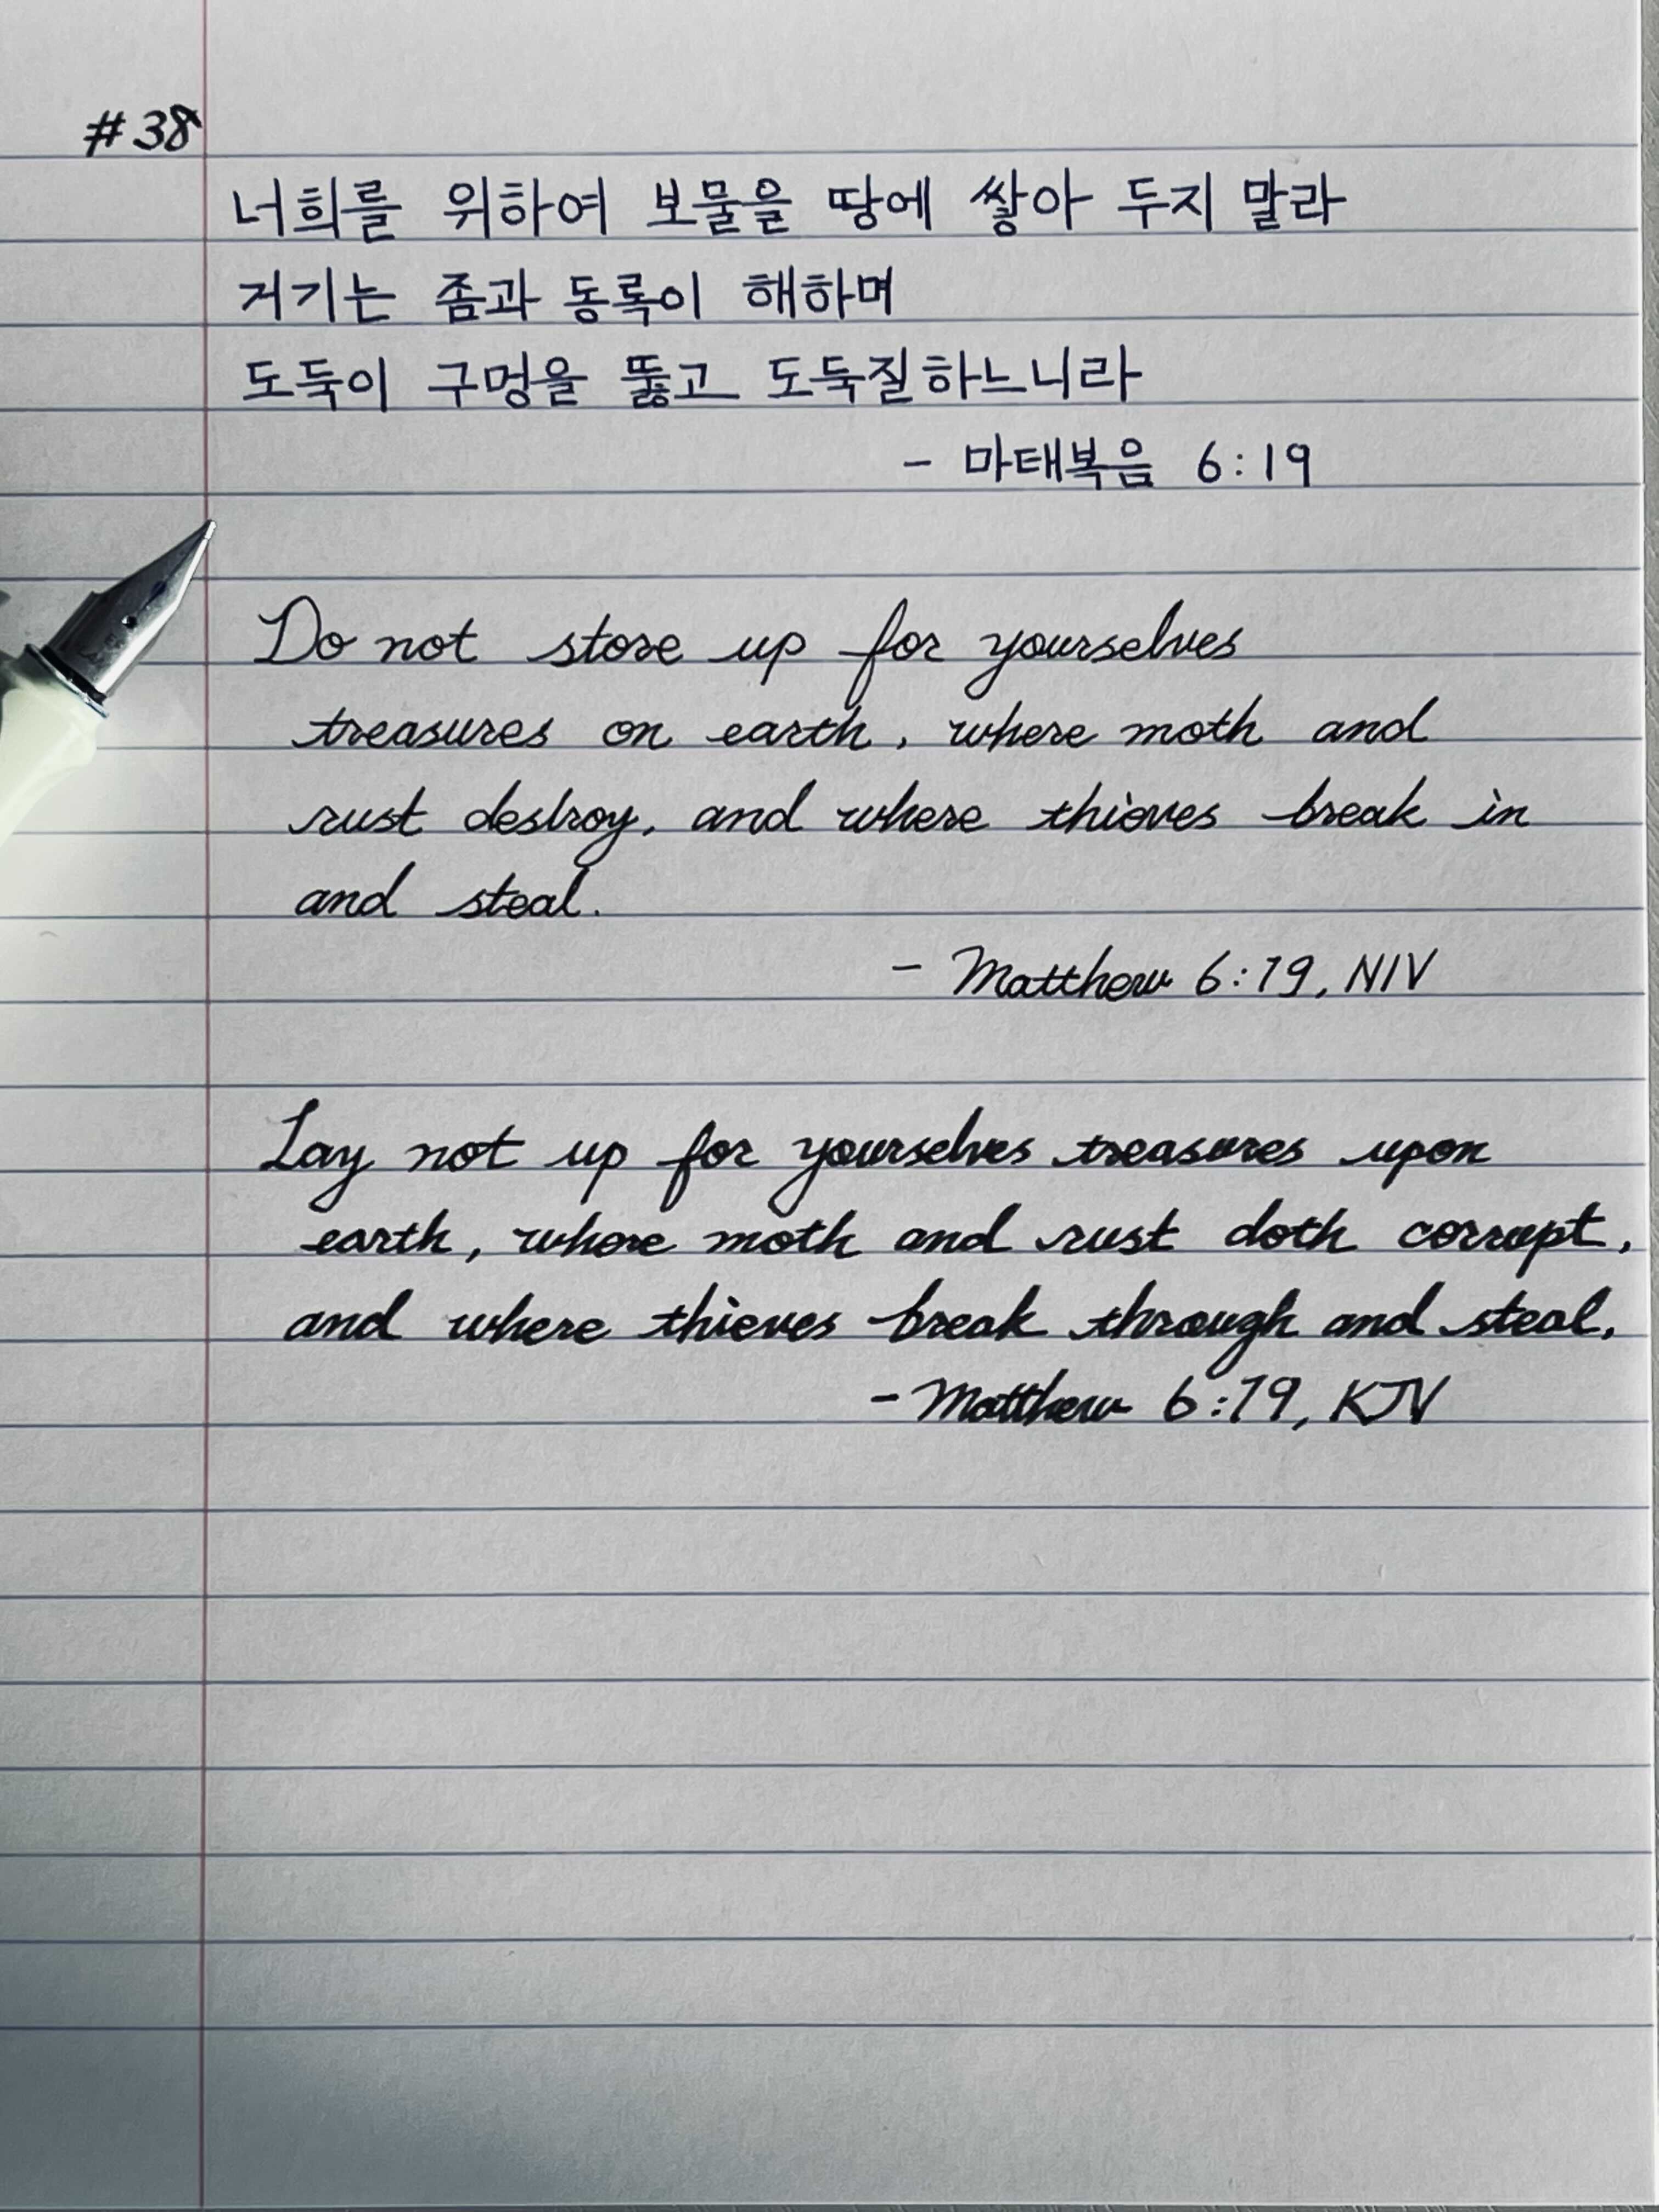 #38
너희를 위하여 보물을 땅에 쌓아 두지 말라
거기는 좀과 동록이 해하며
도둑이 구멍을 뚫고 도둑질하느니라
- 마태복음 6:19
Do not store up for yourselves
treasures on earth, where moth and
rust destroy, and where thieves break in
and steal.
- Matthew 6:19, NIV
Lay not up for yourselves treasures upon
earth, where moth and rust doth corrupt,
and where thieves break through and steal.
- Matthew 6:19, KJV